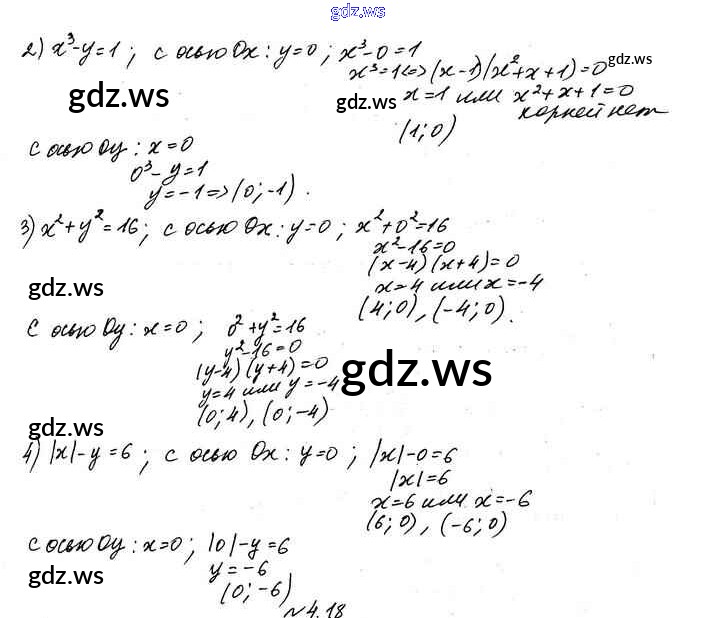 gdz.ws
2) x³-y=1; с осью Ox: y=0; x³-0=1
x³=1<=>(x-1)(x²+x+1)=0 gdz.ws
gdz.ws gdz.ws x=1 или x²+x+1=0
корней нет
(1;0)
с осью Oy: x=0
0³-y=1
y=-1=>(0;-1).
3) x²+y²=16; с осью Ox: y=0; x²+0²=16
x²-16=0
gdz.ws (x-4)(x+4)=0
x=4 или x=-4
(4;0), (-4;0).
с осью Oy: x=0; 0²+y²=16
y²-16=0
(y-4)(y+4)=0 gdz.ws
y=4 или y=-4
(0;4), (0;-4)
gdz.ws
4) |x|-y=6; с осью Ox: y=0; |x|-0=6
|x|=6
x=6 или x=-6
(6;0), (-6;0)
с осью Oy: x=0; |0|-y=6
gdz.ws y=-6
(0;-6)
№4.18